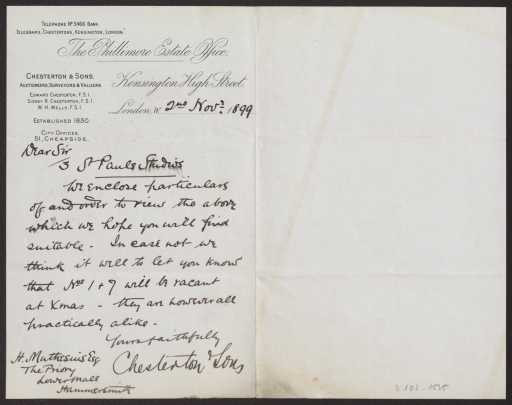 TELEPHONE Nº 3466 BANK.
TELEGRAMS, CHESTERTONS, KENSINGTON, LONDON.
The Phillimore Estate Office.
CHESTERTON & SONS,
AUCTIONEERS, SURVEYORS & VALUERS.
EDWARD CHESTERTON, F.S.I.
SIDNEY R. CHESTERTON, F.S.I.
W. H. WELLS, F.S.I.
ESTABLISHED 1830.
CITY OFFICES,
51, CHEAPSIDE.
Kensington High Street.
London, W. 2nd Novr. 1899
Dear Sir
3 St Pauls Studios
We enclose particulars
of and order to view the above
which we hope you will find
suitable - In case not we
think it will to let you know
that Nos 1 + 7 will be vacant
at Xmas - they are however all
practically alike -
Yours faithfully
Chesterton & Sons
H. Muthesius Esq
The Priory
Lower Mall
Hammersmith